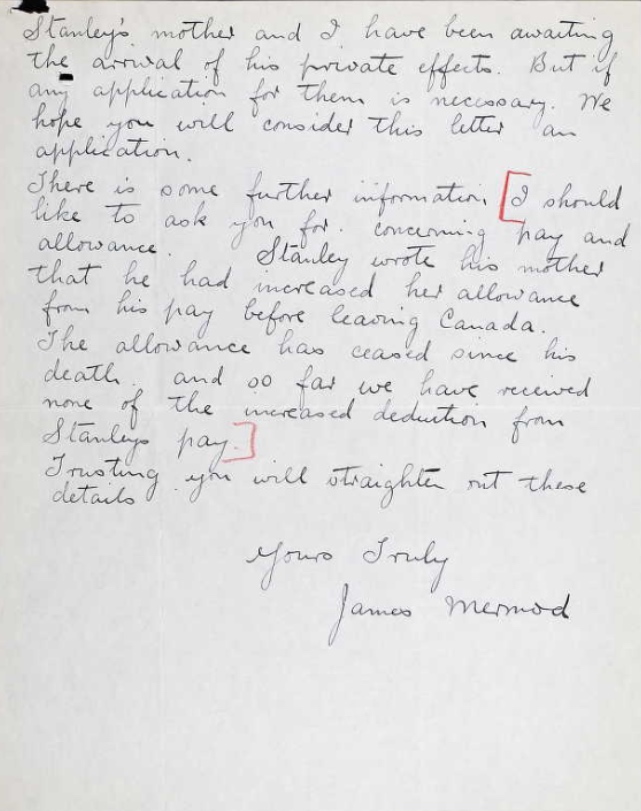 Stanley's mother and I have been awaiting
the arrival of his private effects. But if
any application for them is necessary. We
hope you will consider this letter an
application.
There is some further information [I should
like to ask you for. concerning pay and
allowance. Stanley wrote his mother
that he had increased her allowance
from his pay before leaving Canada.
The allowance has ceased since his
death. and so far we have received
none of the increased deduction from
Stanleys pay.]
Trusting you will straighten out these
details
Yours Truly
James Mermod